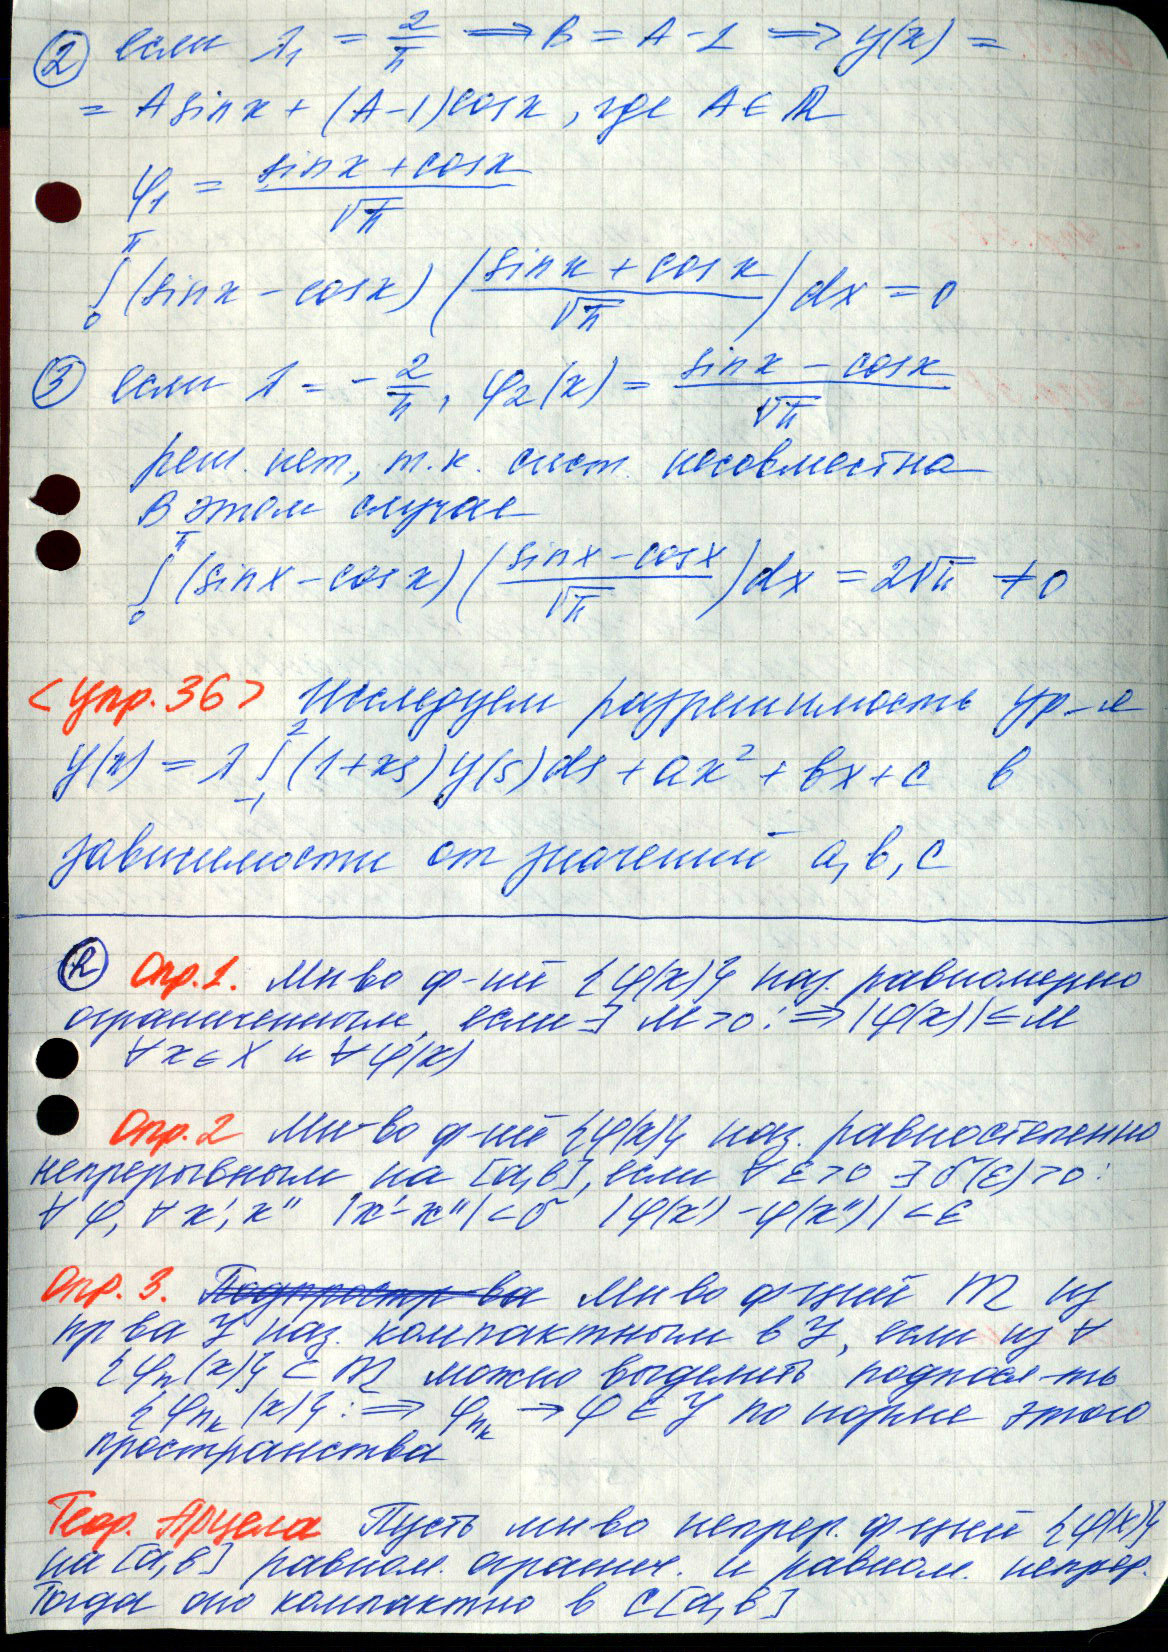 ② если λ₁ = 2/π ⟹ B = A - 1 ⟹ y(x) =
= A sin x + (A-1) cos x, где A ∈ ℝ
φ₁ = (sin x + cos x)/√π
∫₀^π (sin x - cos x) ((sin x + cos x)/√π) dx = 0
③ если λ = - 2/π, φ₂(x) = (sin x - cos x)/√π
реш. нет, т.к. сист. несовместна
В этом случае
∫₀^π (sin x - cos x) ((sin x - cos x)/√π) dx = 2√π ≠ 0
<Упр. 36> Исследуем разрешимость ур-я
y(x) = λ ∫₋₁² (1+xs) y(s) ds + ax² + bx + c в
зависимости от значений a, b, c
Опр. 1. Мн-во ф-ций {φ(x)} наз. равномерно
ограниченным, если ∃ M>0 : ⟹ |φ(x)| ≤ M
∀ x ∈ X и ∀ φ(x)
Опр. 2 Мн-во ф-ций {φ(x)} наз. равностепенно
непрерывным на [a, b], если ∀ ε>0 ∃ δ(ε)>0 :
∀ φ, ∀ x', x'' |x' - x''| < δ |φ(x') - φ(x'')| < ε
Опр. 3. Мн-во ф-ций M из
пр-ва Y наз. компактным в Y, если из ∀
{φₙ(x)} ⊂ M можно выделить подпосл-ть
{φₙₖ(x)} : ⟹ φₙₖ → φ ∈ Y по норме этого
пространства
Теор. Арцела Пусть мн-во непрер. ф-ций {φ(x)}
на [a, b] равном. огранич. и равном. непрер.
Тогда оно компактно в C[a, b]